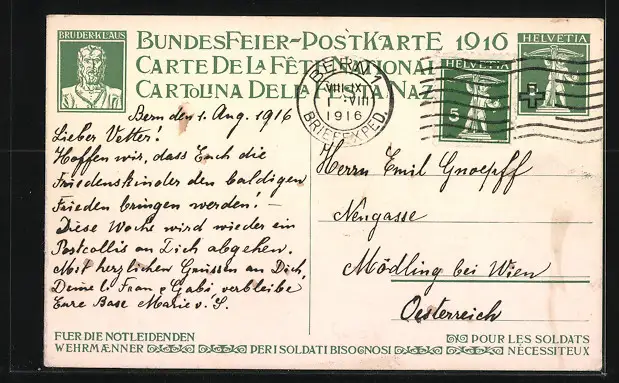 BRUDER-KLAUS
BUNDESFEIER-POSTKARTE 1916
CARTE DE LA FÊTE NATIONAL
CARTOLINA DELLA FESTA NAZ
HELVETIA
HELVETIA
5
BERN 1
VIII-IX
1. VIII
1916
BRIEFEXPED.
Bern den 1. Aug. 1916
Lieber Vetter!
Hoffen wir, dass Euch die
Friedenskinder den baldigen
Frieden bringen werden! –
Diese Woche wird wieder ein
Postcollis an Dich abgehen.
Mit herzlichen Grüssen an Dich,
Deine l. Frau & Gabi verbleibe
Eure Base Marie v. S.
Herrn Emil Gnoepff
Neugasse
Mödling bei Wien
Oesterreich
FUER DIE NOTLEIDENDEN
WEHRMÆNNER
PER I SOLDATI BISOGNOSI
POUR LES SOLDATS
NÉCESSITEUX